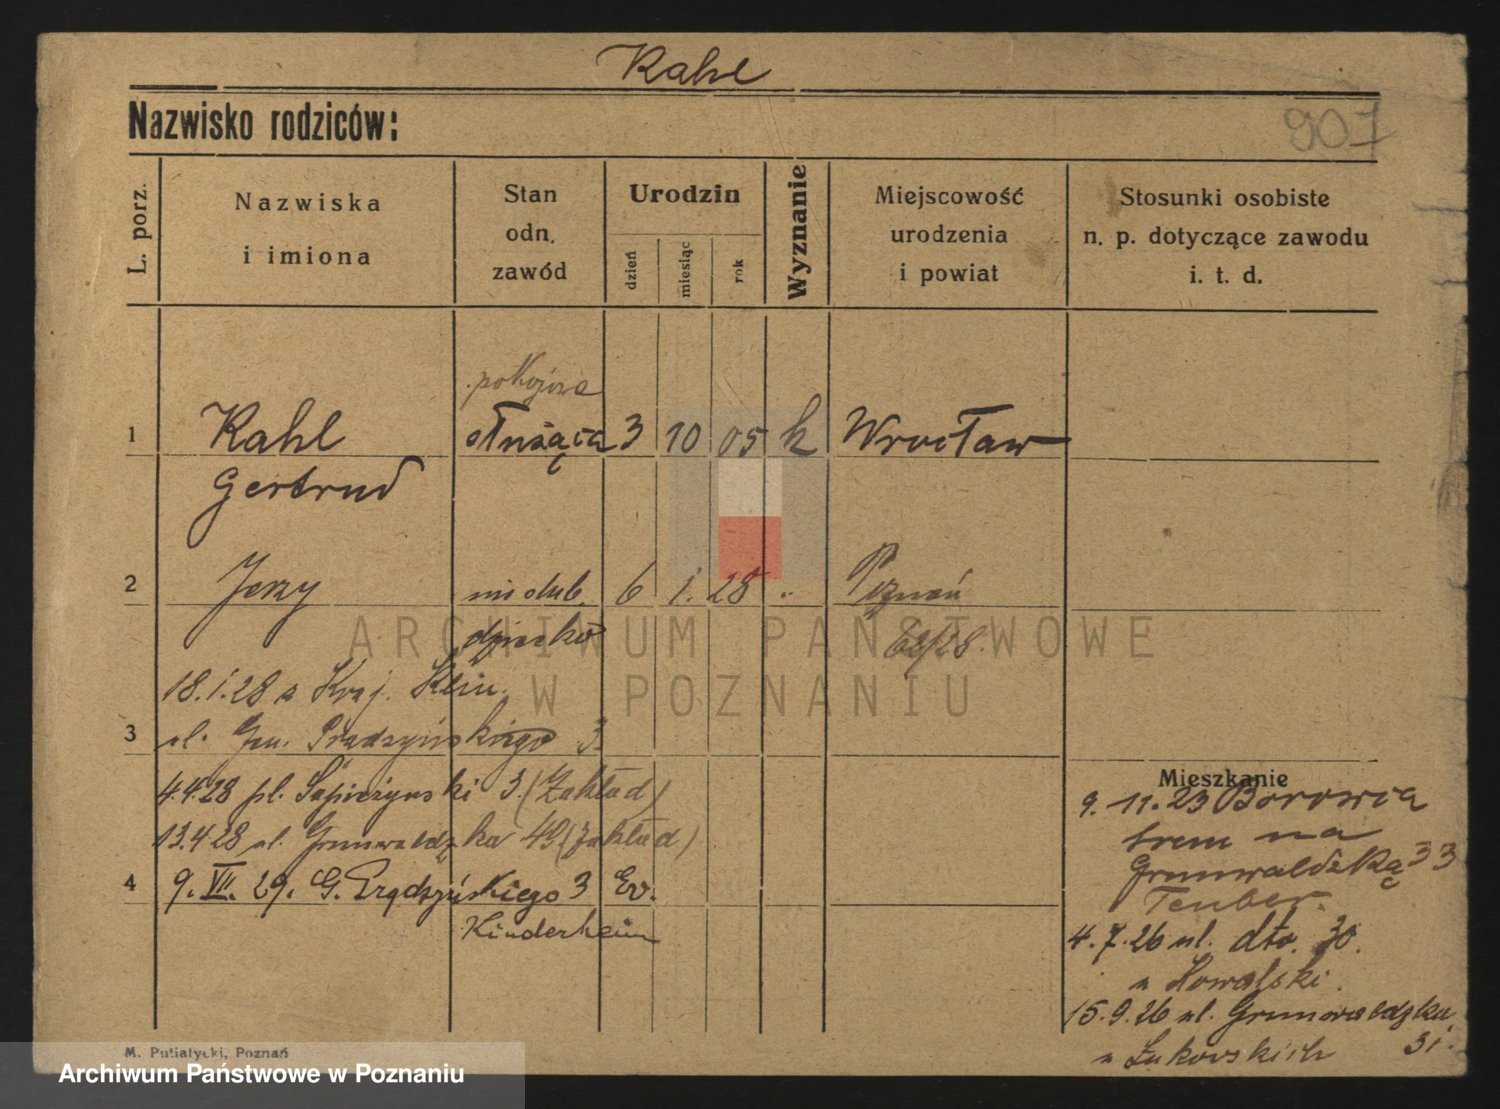 Kahl
Nazwisko rodziców:
907
L. porz.
Nazwiska
i imiona
Stan
odn.
zawód
Urodzin
dzień
miesiąc
rok
Wyznanie
Miejscowość
urodzenia
i powiat
Stosunki osobiste
n. p. dotyczące zawodu
i. t. d.
pokojowa
1 Kahl służąca 3 10 05 k Wrocław
Gertrud
2 Jerzy nieślub. 6 1. 28 " Poznań
dziecko
18.1.28 Kraj. Klin.
3 ul. Gen. Prądzyńskiego 3
4.4.28 pl. Sapieżyński 3 (Zakład)
13.4.28 ul. Grunwaldzka 49 (Zakład)
4 9. VII. 29. G. Prądzyńskiego 3 Ev.
Kinderheim
Mieszkanie
9. 11. 23 Borowia
Srem na
Grunwaldzką 33
Teuber.
4. 7. 26 ul. dto. 30.
u Kowalski.
15. 9. 26 ul. Grunwaldzka
u Łukowskich 31.
M. Putiatycki, Poznań
ARCHIWUM PAŃSTWOWE
W POZNANIU
Archiwum Państwowe w Poznaniu